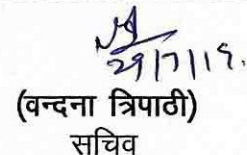 29/7/19.
(वन्दना त्रिपाठी)
सचिव